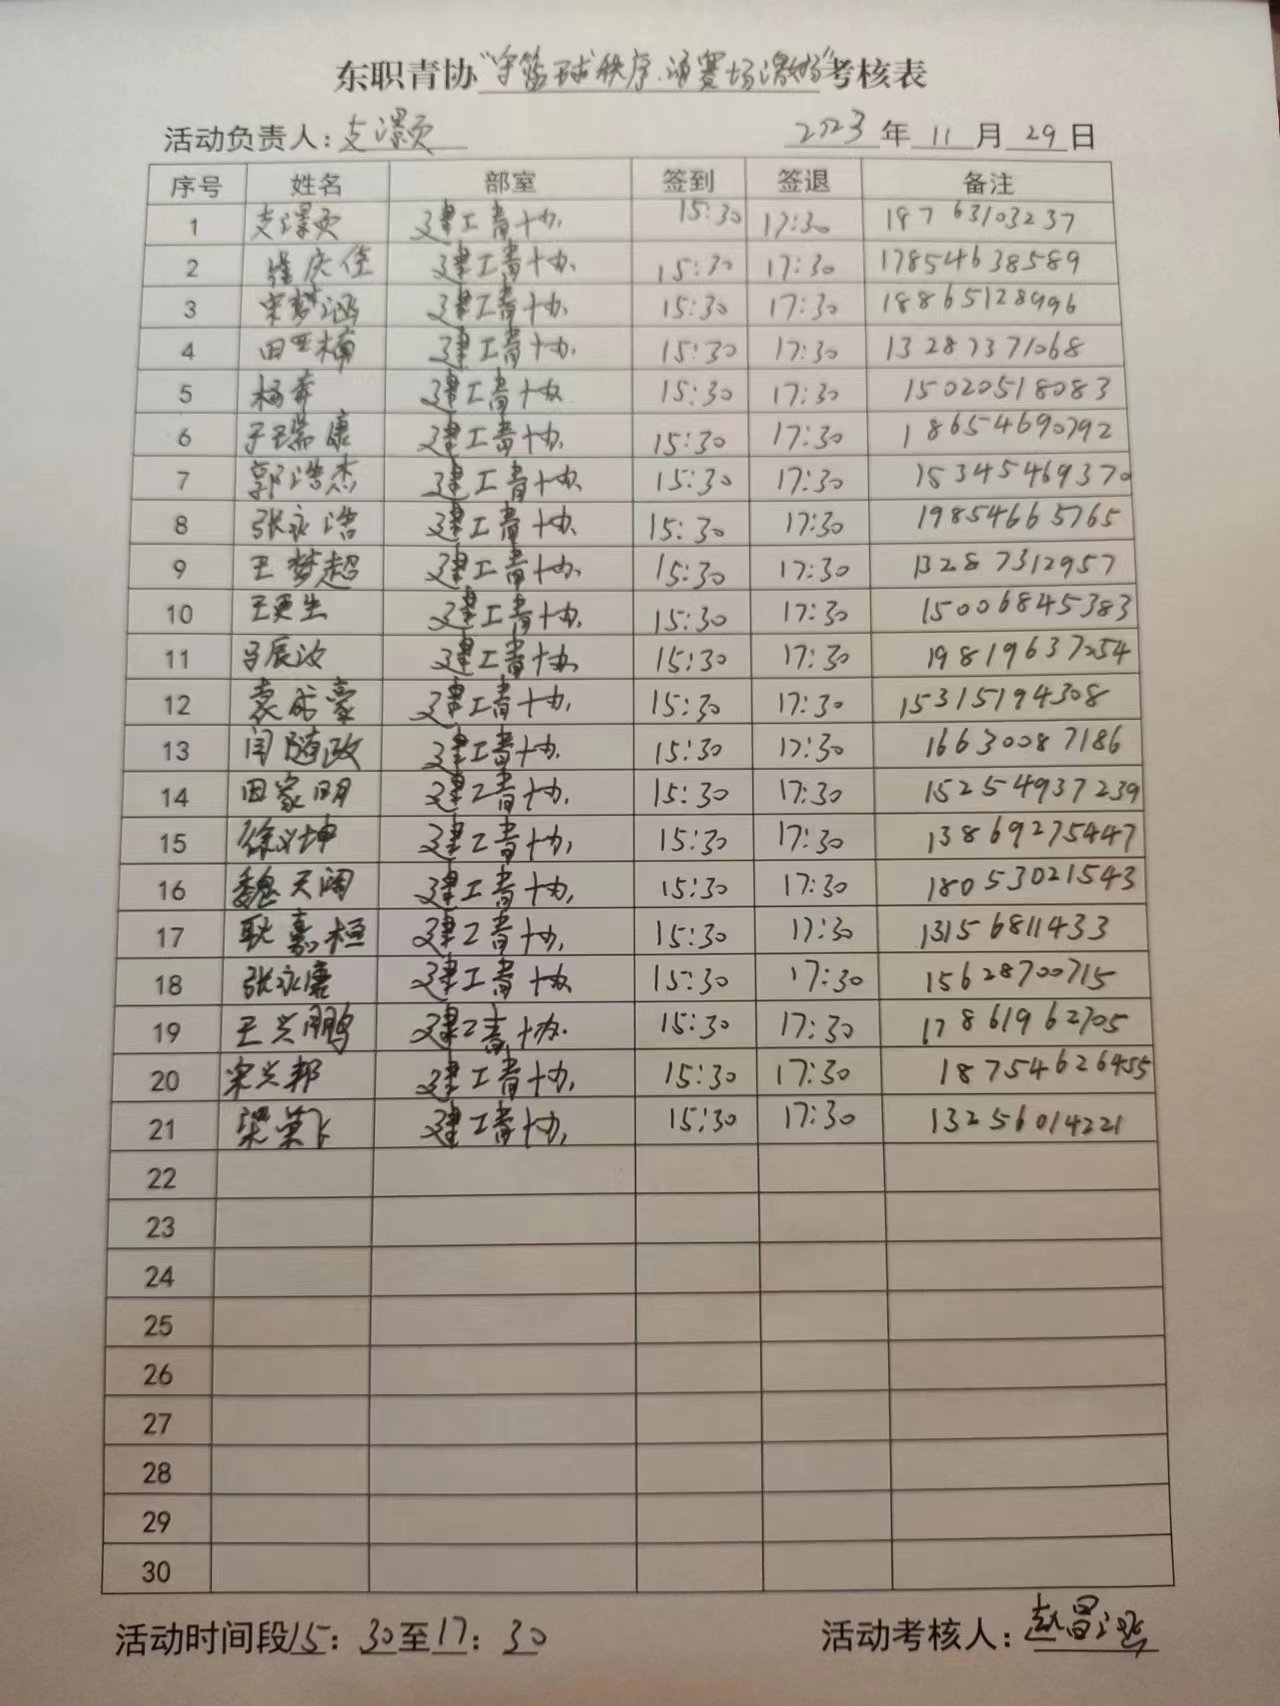 东职青协“守篮球秩序，涌赛场激扬”考核表
活动负责人：支澋页 2023年11月29日
序号 姓名 部室 签到 签退 备注
1 建工青协 15:30 17:30 19763103237
2 崔庆佳 建工青协 15:30 17:30 17854638589
3 宋梦涵 建工青协 15:30 17:30 18865128996
4 田亚楠 建工青协 15:30 17:30 13287371068
5 杨奔 建工青协 15:30 17:30 15020518083
6 于瑞康 建工青协 15:30 17:30 18654690792
7 郭浩杰 建工青协 15:30 17:30 15345469370
8 张永浩 建工青协 15:30 17:30 19854665765
9 王梦超 建工青协 15:30 17:30 13287312957
10 王更生 建工青协 15:30 17:30 15006845383
11 吕辰汝 建工青协 15:30 17:30 19819637054
12 袁成豪 建工青协 15:30 17:30 15315194308
13 闫随政 建工青协 15:30 17:30 16630087186
14 田家明 建工青协 15:30 17:30 15254937239
15 徐义坤 建工青协 15:30 17:30 13869275447
16 魏天阔 建工青协 15:30 17:30 18053021543
17 耿嘉桓 建工青协 15:30 17:30 13156811433
18 张永康 建工青协 15:30 17:30 15628700715
19 王兴鹏 建工青协 15:30 17:30 17861962705
20 宋兴邦 建工青协 15:30 17:30 18754626455
21 建工青协 15:30 17:30 13256014221
22
23
24
25
26
27
28
29
30
活动时间段15：30至17：30 活动考核人：赵昌